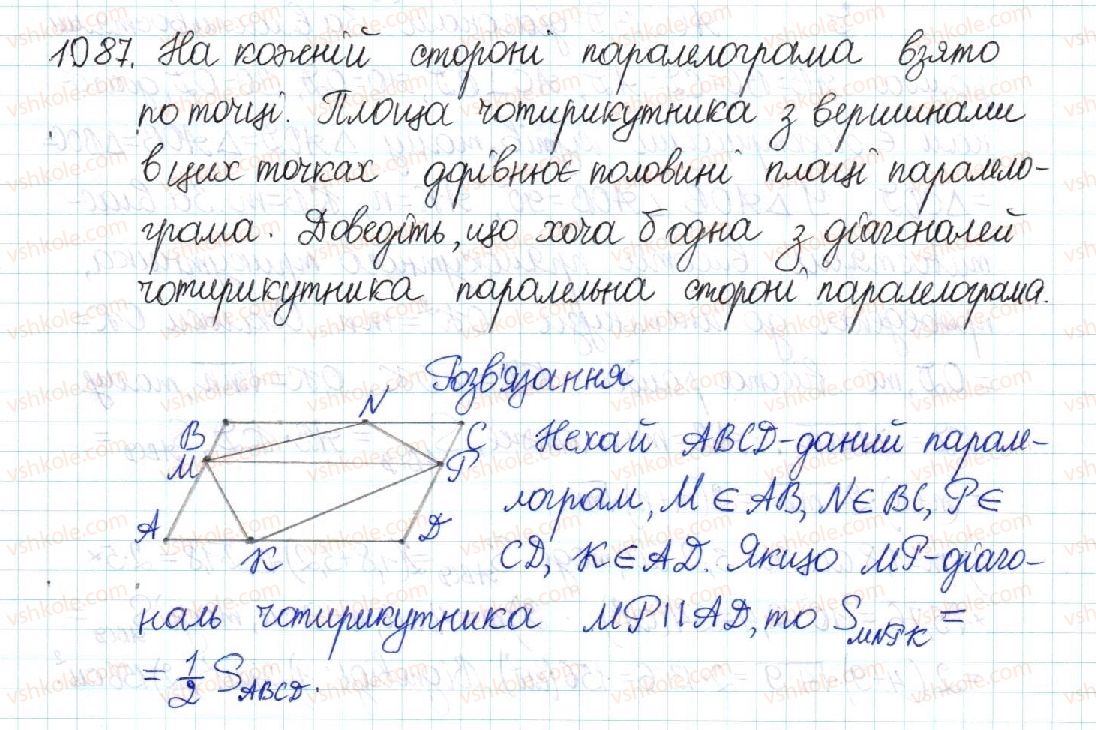 1087. На кожній стороні паралелограма взято
по точці. Площа чотирикутника з вершинами
в цих точках дорівнює половині площі паралело-
грама. Доведіть, що хоча б одна з діагоналей
чотирикутника паралельна стороні паралелограма.
Розв'язання
B N C
M P
A K D
Нехай ABCD-даний парале-
лограм, M ∈ AB, N ∈ BC, P ∈
CD, K ∈ AD. Якщо MP-діаго-
наль чотирикутника MP || AD, то S_MNPK =
= 1/2 S_ABCD.
vshkole.com